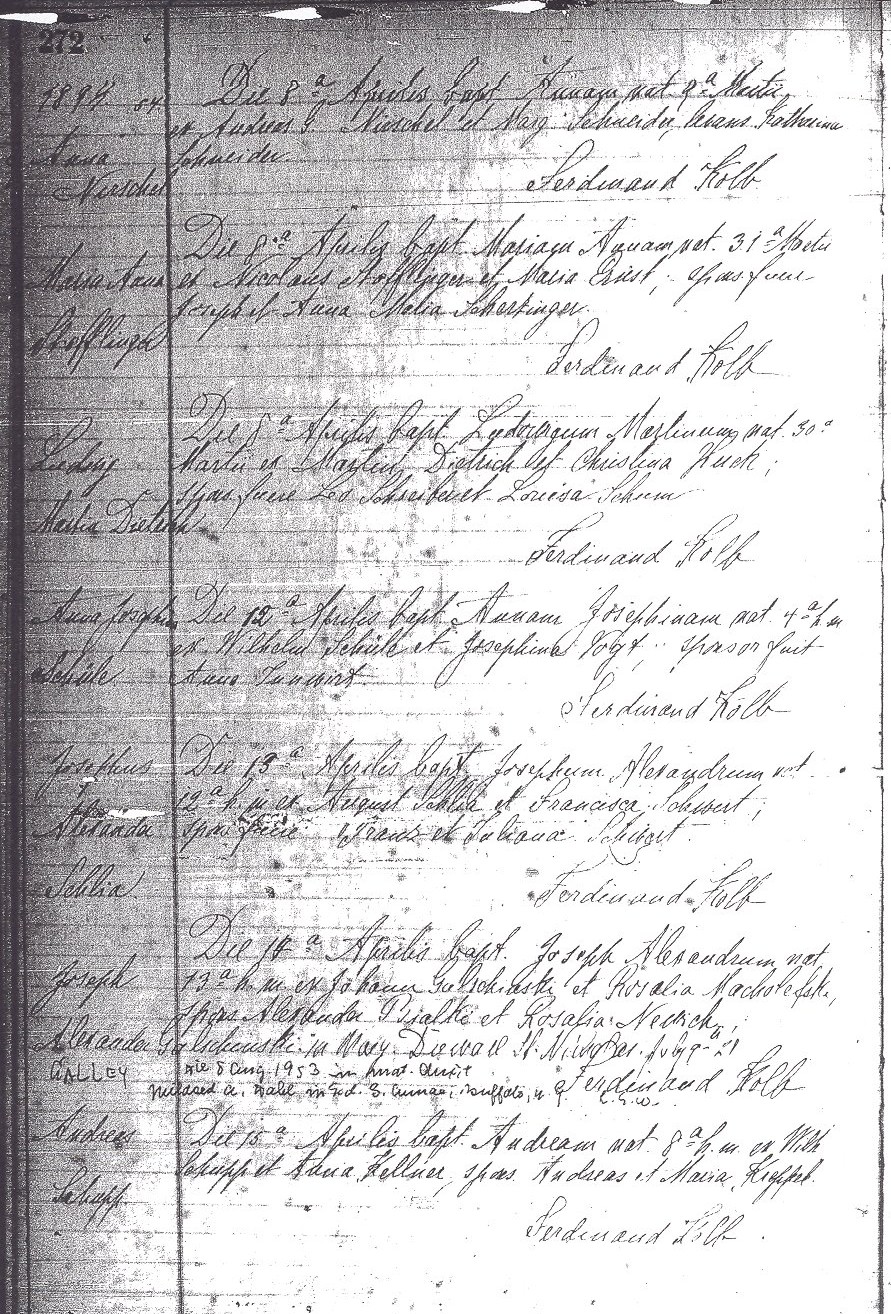 272
1894 54 Die 8ª Aprilis bapt Annam nat 9ª Martii
ex Andreas Nirschel et Marg Schneider, levans Katharina
Anna Schneider
Nirschel Ferdinand Kolb
Die 8ª Aprilis bapt. Mariam Annam nat. 31ª Martii
Maria Anna et Nicolaus Stofflinger et Maria Ernst, spons fuere
Joseph et Anna Maria Schertzinger.
Stofflinger Ferdinand Kolb
Die 8ª Aprilis bapt. Ludovicum Martinum nat. 30ª
Ludwig Martii ex Martin Dietrich et Christina Huck;
spons fuere Leo Schreiber et Louisa Schum
Martin Dietrich
Ferdinand Kolb
Anna Josephina Die 12ª Aprilis bapt Annam Josephinam nat. 4ª h. m
ex Wilhelm Schüle et Josephina Vogt, sponsor fuit
Schüle Anna
Ferdinand Kolb
Josephus Die 13ª Aprilis bapt. Josephum Alexandrum nat.
12ª h. m ex August Schlia et Francisca Schwert,
Alexander spons fuere Franz et Juliana
Schlia Ferdinand Kolb
Die 14ª Aprilis bapt. Joseph Alexandrum nat
Joseph 13ª h. m ex Johann et Rosalia
spons Alexander et Rosalia
Alexander in St. Nicholas. July 9- 21
GALLEY Die 8 Aug 1953 in
Ferdinand Kolb
in Buffalo, n. y.
Andreas Die 15ª Aprilis bapt. Andream nat. 8ª h. m. ex Wilh
Schupp et Anna Kellner, spons. Andreas et Maria
Schupp
Ferdinand Kolb